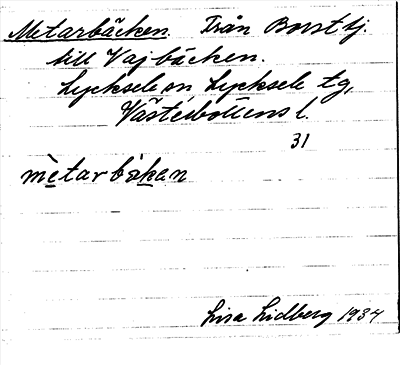 Metarbäcken. Från Borsttj.
till Vajbäcken.
Lycksele sn Lycksele tg,
Västerbottens l.
31
mètarbä̀kan
Lisa Lidberg 1934